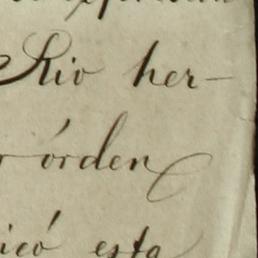 Rio her-
órden
icó esta